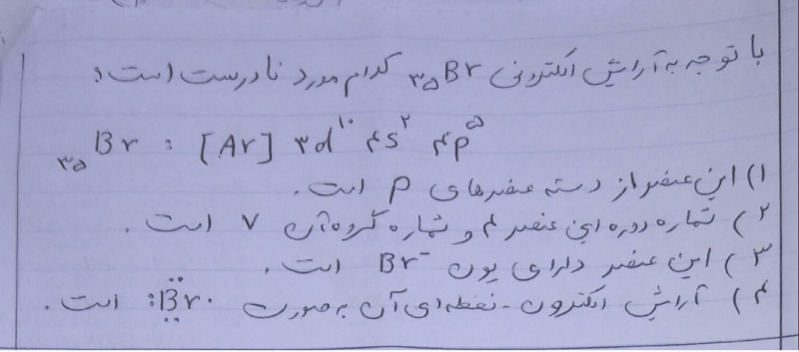 با توجه به آرایش الکترونی ₃₅Br کدام مورد نادرست است؟
₃₅Br : [Ar] ۳d¹⁰ ۴s² ۴p⁵
۱) این عنصر از دسته عنصرهای p است.
۲) شماره دوره این عنصر ۴ و شماره گروه آن ۷ است.
۳) این عنصر دارای یون Br⁻ است.
۴) آرایش الکترون - نقطه‌ای آن به صورت :B̤̈r· است.